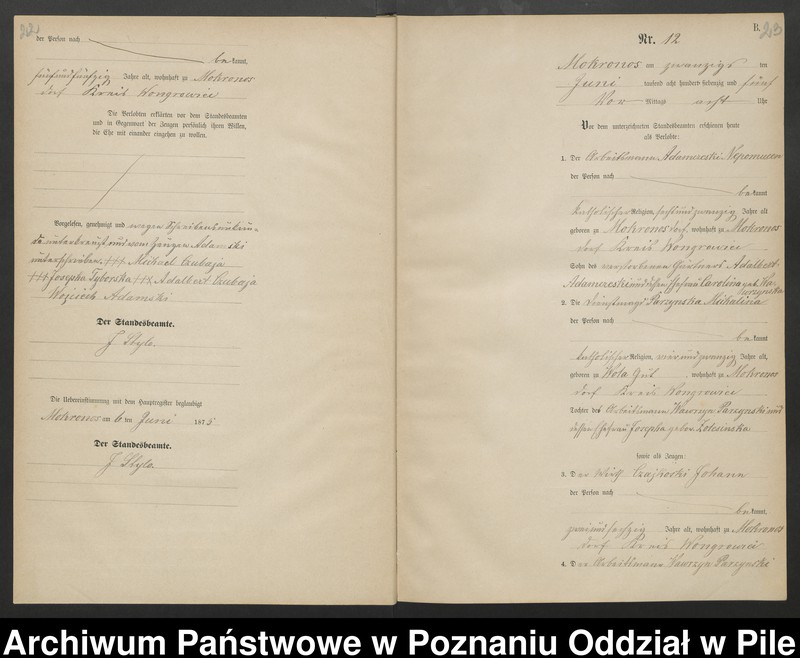 22
der Person nach
be kannt,
fünfundfünfzig Jahre alt, wohnhaft zu Mokronos
dorf Kreis Wongrowiec
Die Verlobten erklärten vor dem Standesbeamten
und in Gegenwart der Zeugen persönlich ihren Willen,
die Ehe mit einander eingehen zu wollen.
Vorgelesen, genehmigt und wegen Schreibensunkun-
de unterkreuzt und vom Zeugen Adamski
unterschrieben. +++ Michael Czubaja
+++ Josepha Tyborska +++ Adalbert Czubaja
Wojciech Adamski
Der Standesbeamte.
J Stylo.
Die Uebereinstimmung mit dem Hauptregister beglaubigt
Mokronos am 6 ten Juni 1875
Der Standesbeamte.
J Stylo.
B. 23
Nr. 12
Mokronos am zwanzigs ten
Juni tausend acht hundert siebenzig und fünf
Vor Mittags acht Uhr
Vor dem unterzeichneten Standesbeamten erschienen heute
als Verlobte:
1. Der Arbeitsmann Adamczeski Nepomucen
der Person nach
be kannt
katholischer Religion, sechsundzwanzig Jahre alt
geboren zu Mokronos dorf, wohnhaft zu Mokronos
dorf Kreis Wongrowiec
Sohn des verstorbenen Gärtners Adalbert
Adamczeski und dessen Ehefrau Carolina geb.
2. Die Dienstmagd Parzynska Michalina
der Person nach
be kannt
katholischer Religion, vierundzwanzig Jahre alt,
geboren zu Wola Gut, wohnhaft zu Mokronos
dorf Kreis Wongrowiec
Tochter des Arbeitsmann Wawrzyn Parzynski und
dessen Ehefrau Josepha gebor.
sowie als Zeugen:
3. Der Wirth Czajkoski Johann
der Person nach
be kannt,
zweiundsechzig Jahre alt, wohnhaft zu Mokronos
dorf Kreis Wongrowiec
4. Der Arbeitsmann Wawrzyn Parzynski
Archiwum Państwowe w Poznaniu Oddział w Pile